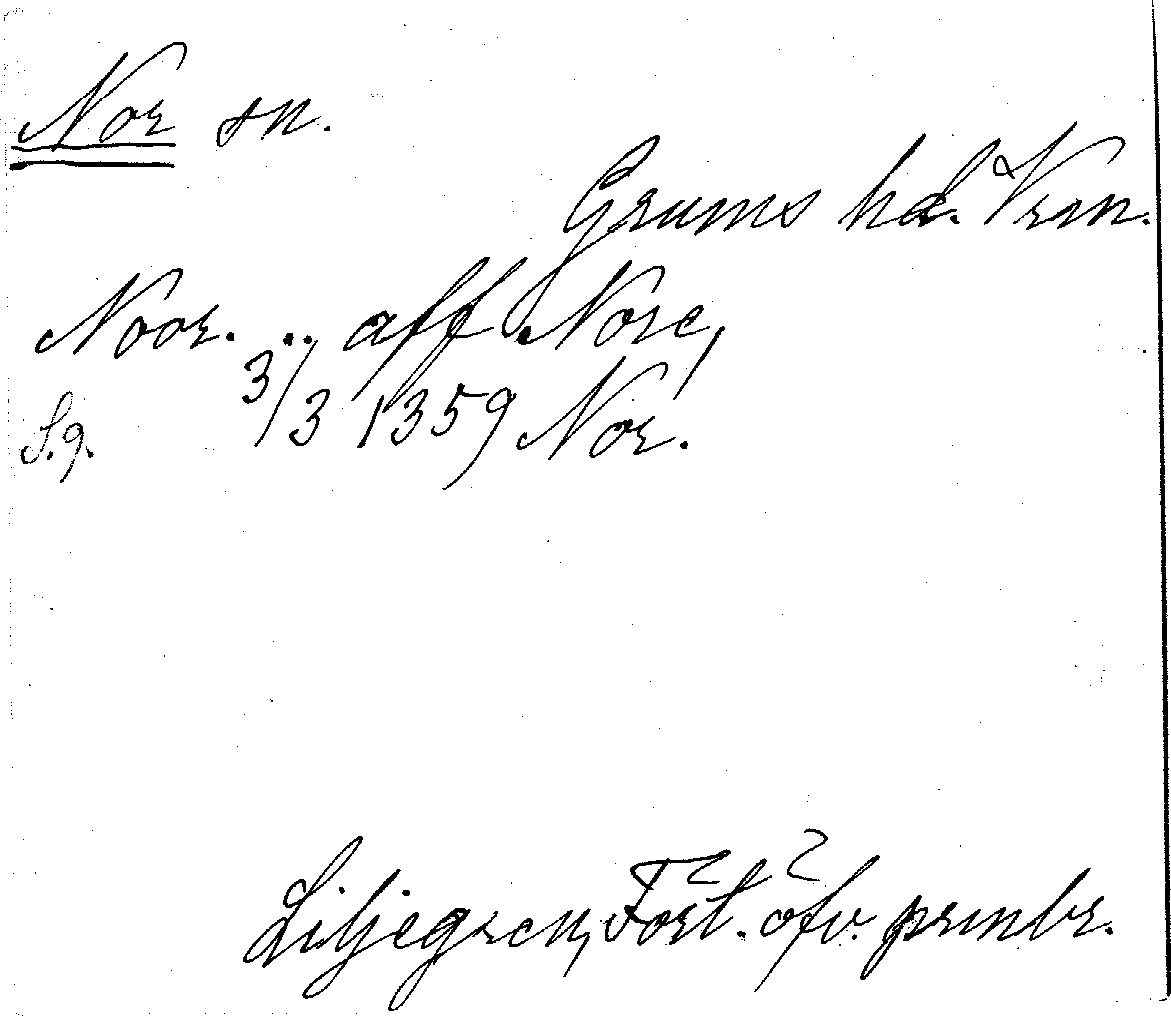 Nor sn.
Grums hd. Vrm.
Noor. .. aff Nore,
S.g. 3/3 1359 Nor.
Liljegren, Fört. öfv. prmbr.